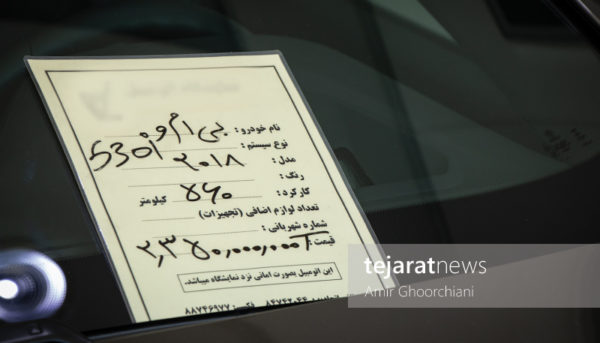 نام خودرو : بی ام و
نوع سیستم : 530i
مدل : ۲۰۱۸
رنگ :
کارکرد : ۵۶۰ کیلومتر
تعداد لوازم اضافی (تجهیزات) :
شماره شهربانی :
قیمت : ۲,۳۵۰,۰۰۰,۰۰۰T
این اتومبیل بصورت امانی نزد نمایشگاه میباشد.
tejaratnews
Amir Ghoorchiani